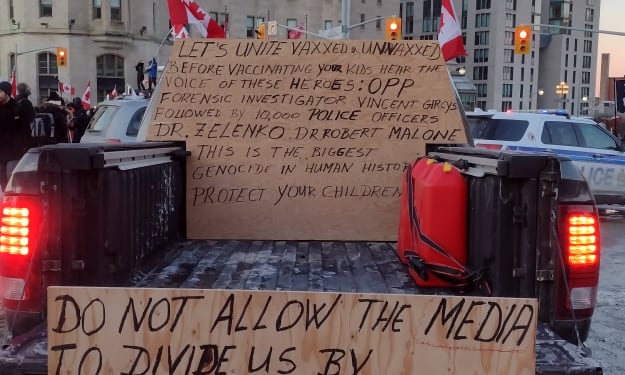 LET'S UNITE VAXXED & UNVAXXED
BEFORE VACCINATING YOUR KIDS HEAR THE
VOICE OF THESE HEROES: OPP
FORENSIC INVESTIGATOR VINCENT GIRCYS
FOLLOWED BY 10,000 POLICE OFFICERS
DR. ZELENKO. DR. ROBERT MALONE
THIS IS THE BIGGEST
GENOCIDE IN HUMAN HISTOR
PROTECT YOUR CHILDREN
DO NOT ALLOW THE MEDIA
TO DIVIDE US BY